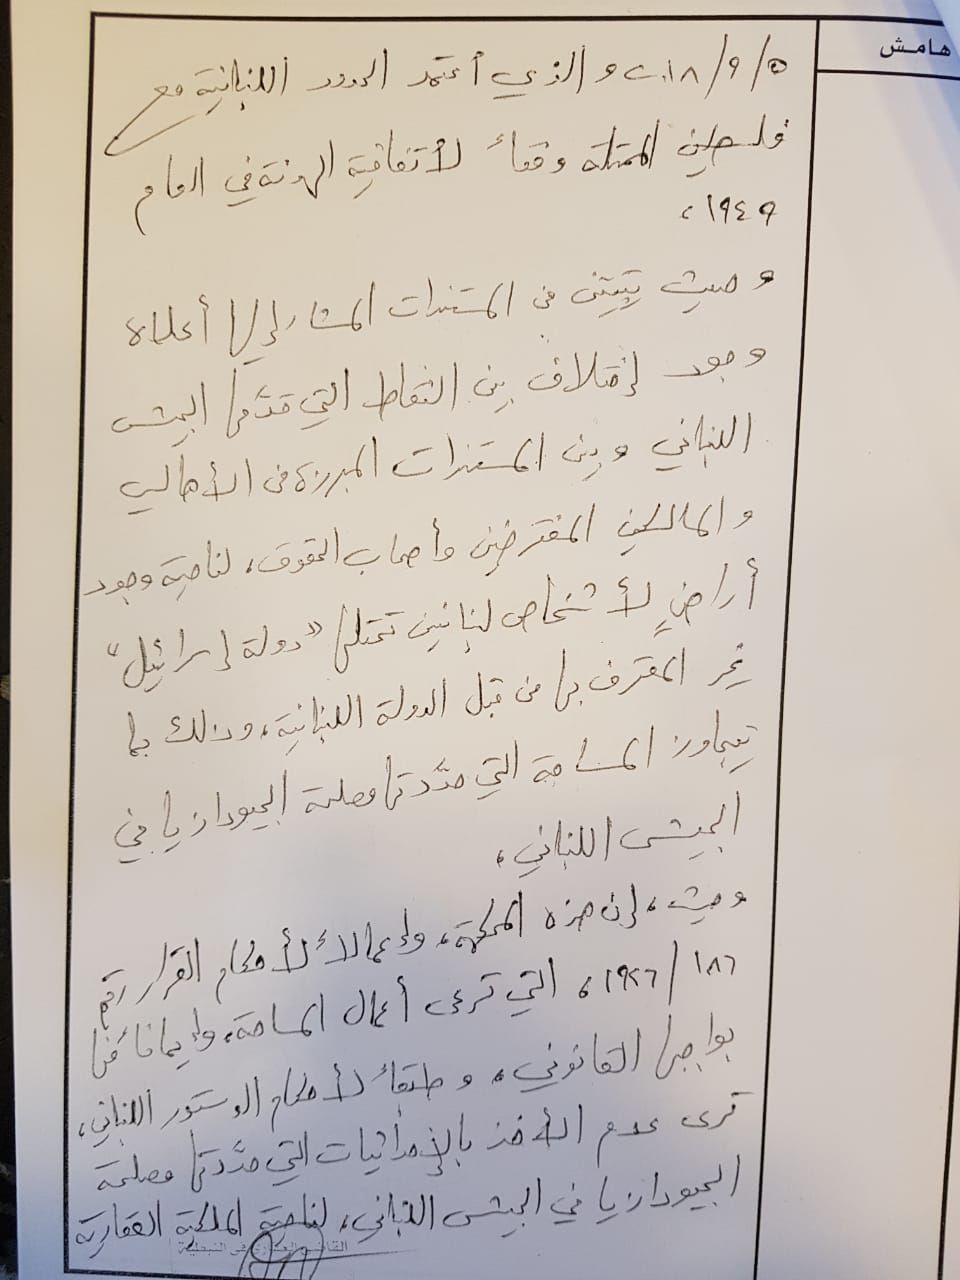 هامش
٢٠١٨/٩/٥ والذي أعتمد الحدود اللبنانية مع
فلسطين المحتلة وفقاً لأتفاقية الهدنة في العام
١٩٤٩،
وحيث يتبيّن من المستندات المشار إليها أعلاه
وجود إختلاف بين النقاط التي قدّمها الجيش
اللبناني وبين المستندات المبرزة من الأهالي
والمالكين المفترضين وأصحاب الحقوق، لناحية وجود
أراضٍ لأشخاص لبنانيين تحتلها "دولة إسرائيل"
غير المعترف بها من قبل الدولة اللبنانية، وذلك بما
يتجاوز المساحة التي حدّدتها مصلحة الجيودازيا في
الجيش اللبناني،
وحيث، إن هذه المحكمة، وإعمالاً لأحكام القرار رقم
١٨٦/١٩٢٦، التي ترعى أعمال المساحة، وإيماناً منها
بواجبها القانوني، وطبقاً لأحكام الدستور اللبناني،
ترى عدم الأخذ بالإحداثيات التي حدّدتها مصلحة
الجيودازيا في الجيش اللبناني، لناحية الملكية العقارية
القاضي العقاري في النبطية